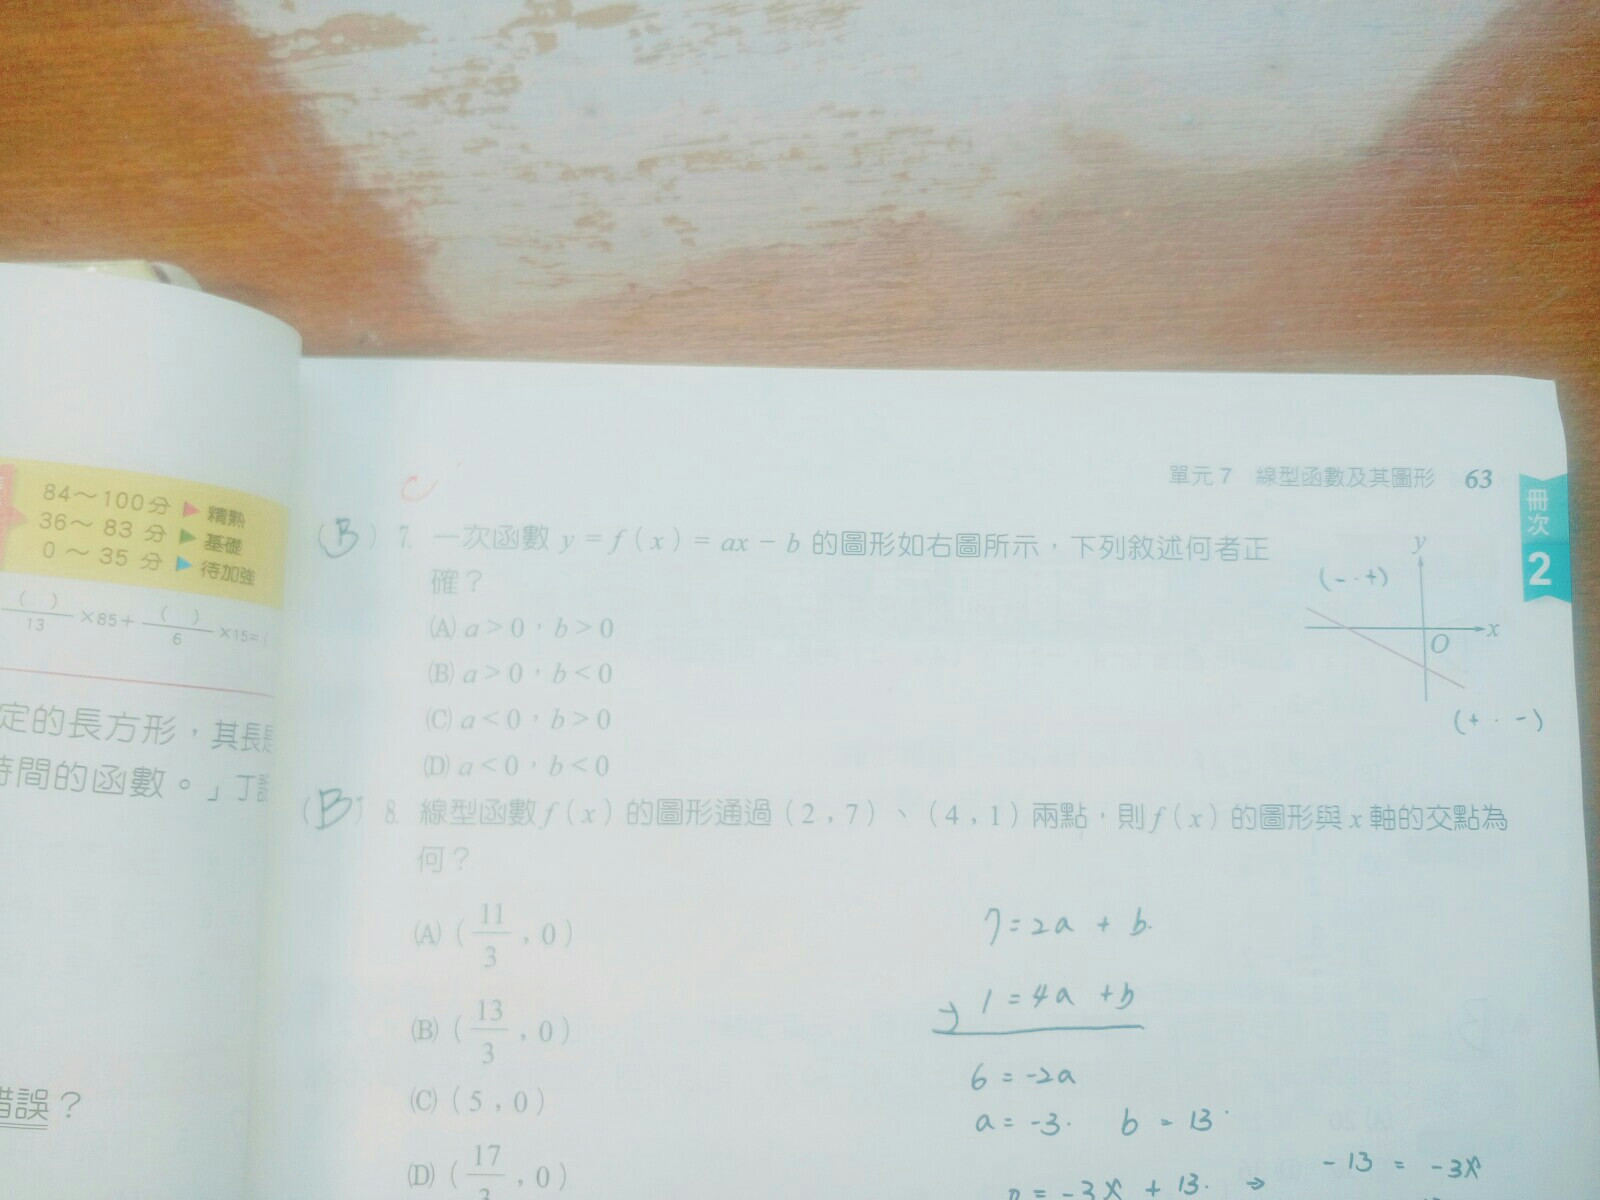 84～100分 ▶ 精熟
36～ 83 分 ▶ 基礎
0 ～ 35 分 ▶ 待加強
( )/13 ×85+ ( )/6 ×15=(
定的長方形，其長
時間的函數。」丁
錯誤？
單元 7 線型函數及其圖形 63
冊次
2
C
(B) 7. 一次函數 y = f ( x ) = ax − b 的圖形如右圖所示，下列敘述何者正
確？
(A) a > 0，b > 0
(B) a > 0，b < 0
(C) a < 0，b > 0
(D) a < 0，b < 0
y
(- · +)
x
O
(+ · -)
(B) 8. 線型函數 f ( x ) 的圖形通過 ( 2 , 7 ) 、 ( 4 , 1 ) 兩點，則 f ( x ) 的圖形與 x 軸的交點為
何？
(A) ( 11/3 , 0 )
(B) ( 13/3 , 0 )
(C) ( 5 , 0 )
(D) ( 17/3 , 0 )
7 = 2a + b
-) 1 = 4a + b
6 = -2a
a = -3. b = 13
= -3x + 13. ⇒
-13 = -3x